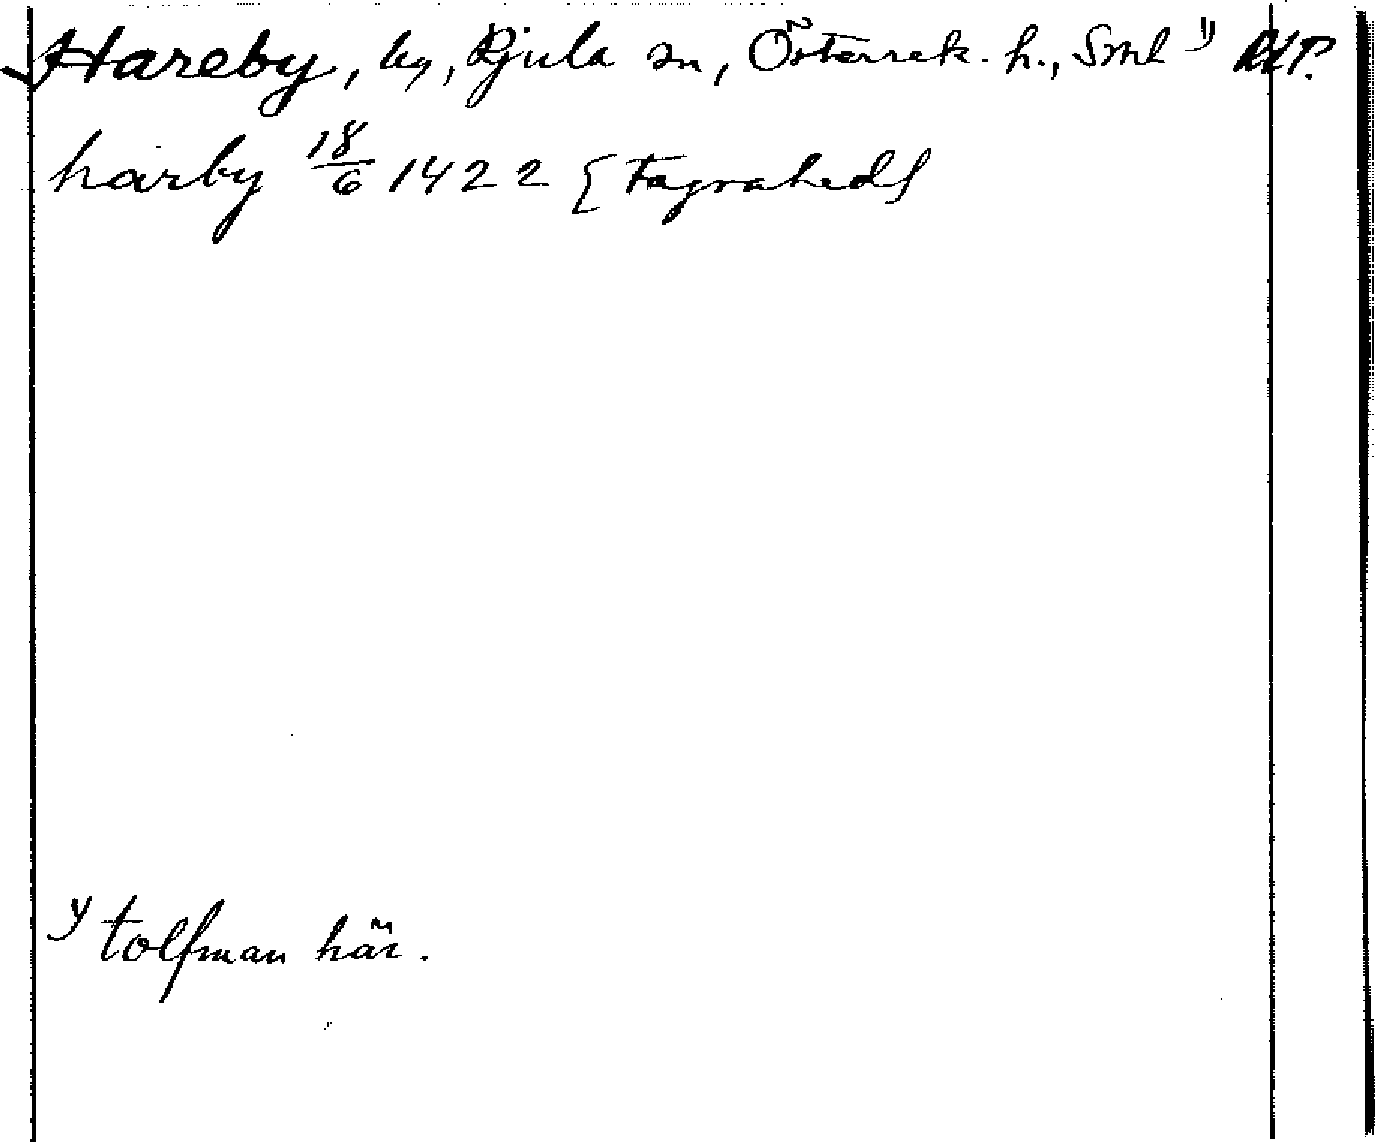 Hareby, by, Rjula sn, Österrek. h., Sml 1)
harby 18/6 1422 [Fagrahed]
1) tolfman här.